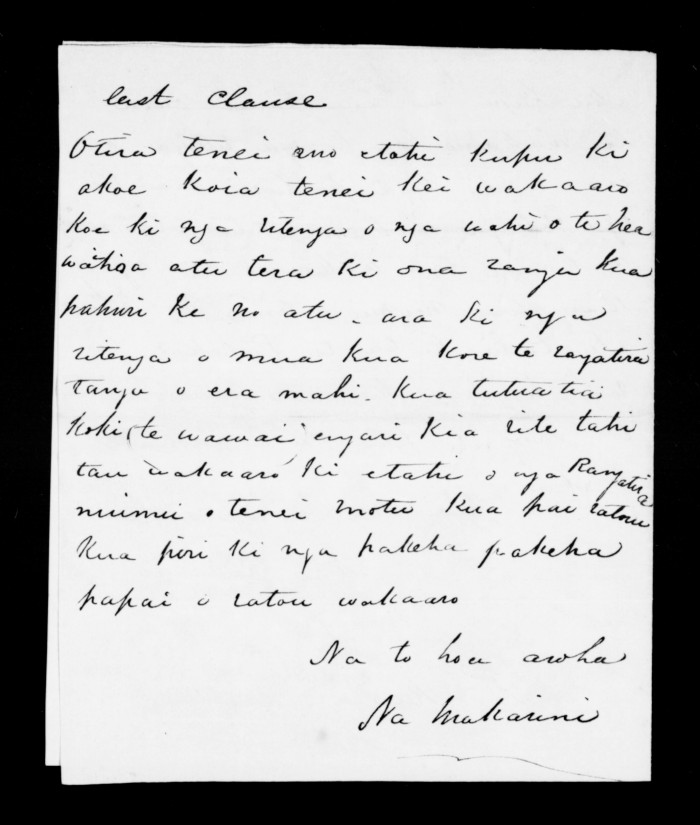 last Clause
Otira tenei ano etahi kupu ki
akoe koia tenei kei wakaaro
koe ki nga ritenga o nga wahi o te hea
wahoa atu tera ki ona ranga kua
pahure ke no atu - ara ki nga
ritenga o mua kua kore te rangatira
tanga o era mahi. kua tutuatia
koki te wawai engari kia rite tahi
tau wakaaro ki etahi o nga Rangatira
nuinui o tenei motu kua pai ratou
kua piri ki nga pakeha pakeha
papai o ratou wakaaro
Na to hoa aroha
Na Makarini